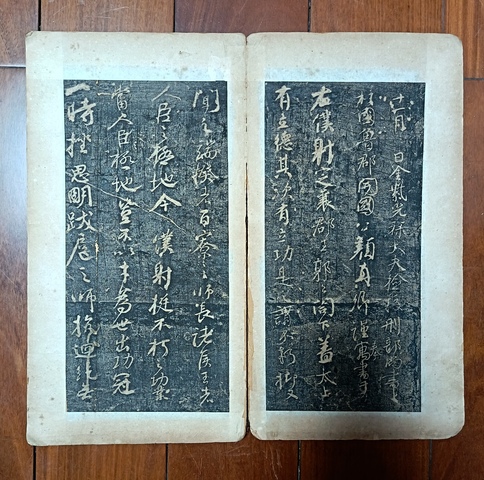 十一月日金紫光祿大夫檢校刑部尚書上
柱國魯郡開國公顏真卿謹寓書于
右僕射定襄郡王郭公閤下蓋太上
有立德其次有立功是之謂不朽抑又
聞之端揆者百寮之師長諸侯王者
人臣之極地今僕射挺不朽之功業
當人臣極地豈不以才為世出功冠
一時挫思明跋扈之師抗迴紇無